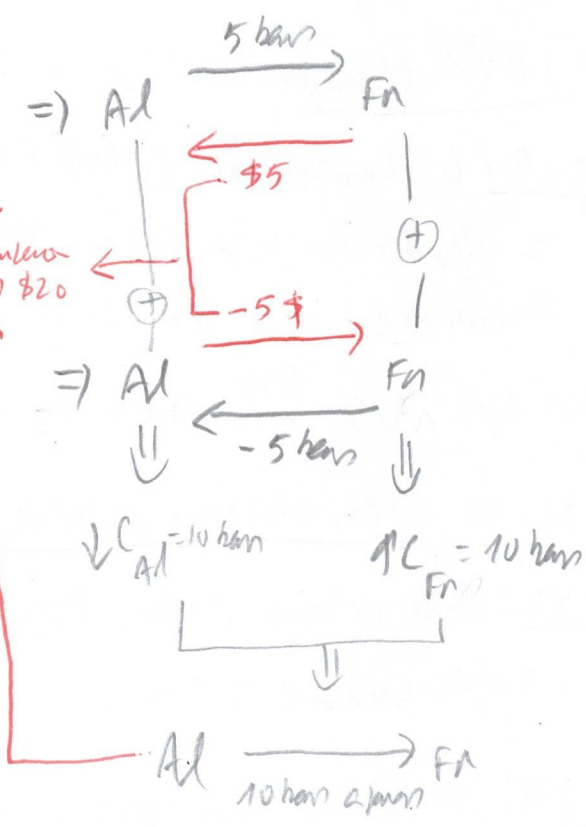 5 bars
=> Al Fn
$5
$20
-5 $
=> Al Fn
-5 bars
↓C Al =10 bars ↑C Fn = 10 bars
Al Fn
10 bars